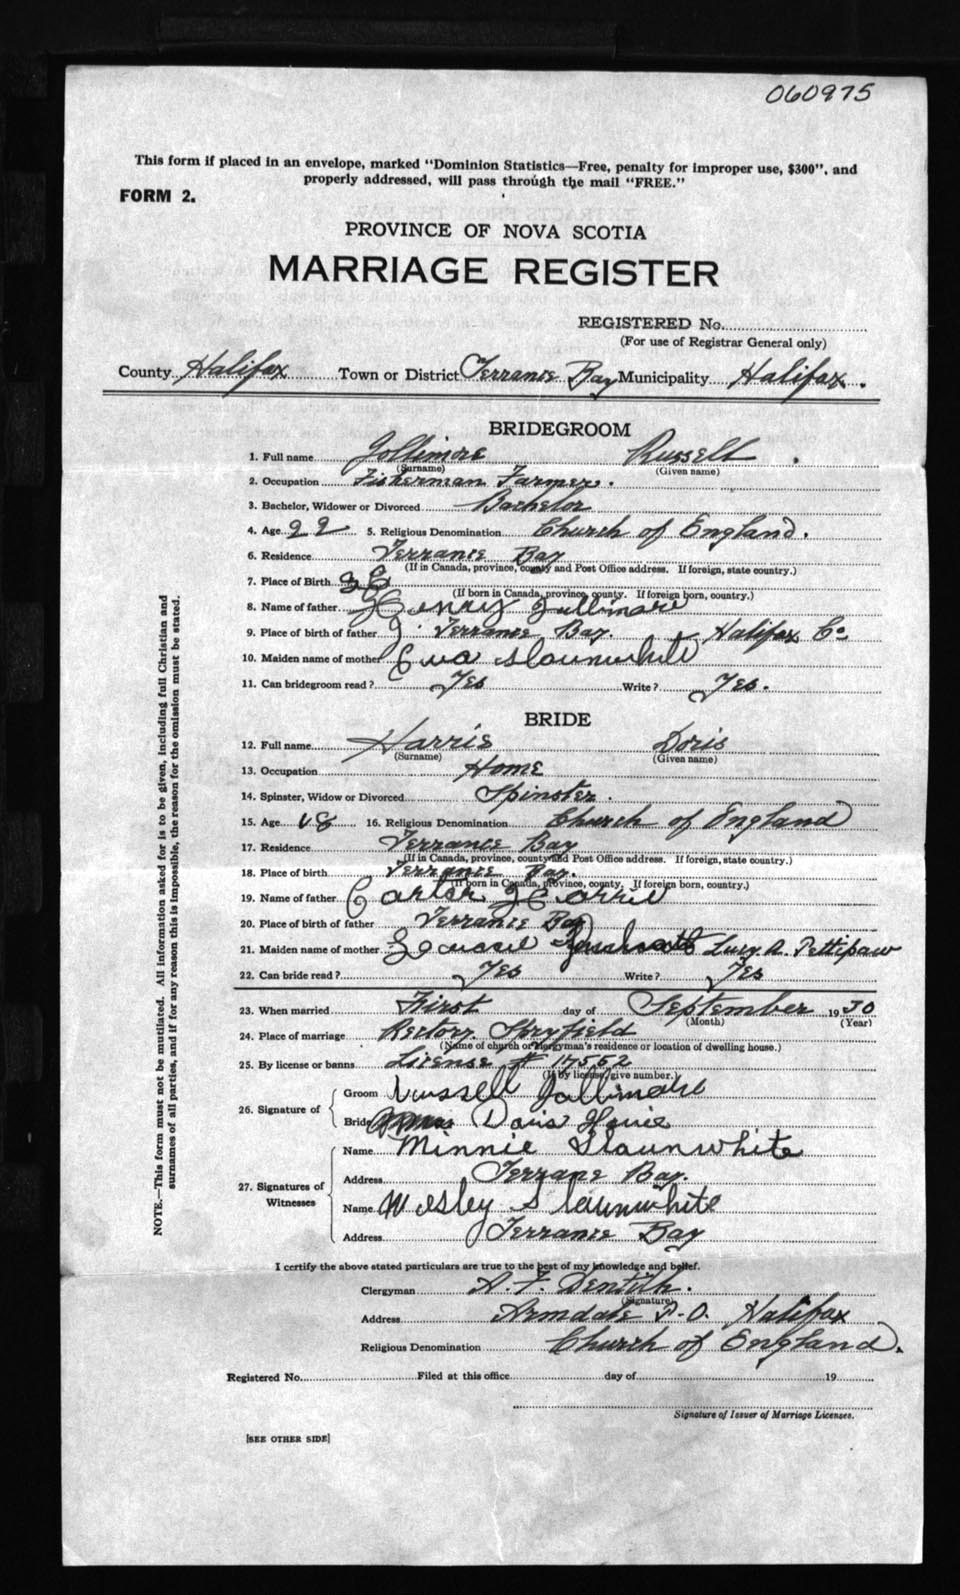 060975
This form if placed in an envelope, marked "Dominion Statistics—Free, penalty for improper use, $300", and
properly addressed, will pass through the mail "FREE."
FORM 2.
PROVINCE OF NOVA SCOTIA
MARRIAGE REGISTER
REGISTERED No.
(For use of Registrar General only)
County Halifax Town or District Terrance Bay Municipality Halifax.
BRIDEGROOM
1. Full name Jollimore Russell
(Surname) (Given name)
2. Occupation Fisherman Farmer.
3. Bachelor, Widower or Divorced Bachelor
4. Age 22 5. Religious Denomination Church of England.
6. Residence Terrance Bay
(If in Canada, province, county and Post Office address. If foreign, state country.)
7. Place of Birth
(If born in Canada, province, county. If foreign born, country.)
8. Name of father Henry Jollimore
9. Place of birth of father Terrance Bay Halifax Co.
10. Maiden name of mother Eva Slaunwhite
11. Can bridegroom read? Yes Write? Yes.
BRIDE
12. Full name Harris Doris
(Surname) (Given name)
13. Occupation Home
14. Spinster, Widow or Divorced Spinster.
15. Age 18 16. Religious Denomination Church of England
17. Residence Terrance Bay
(If in Canada, province, county and Post Office address. If foreign, state country.)
18. Place of birth Terrance Bay.
(If born in Canada, province, county. If foreign born, country.)
19. Name of father Carter Harrie
20. Place of birth of father Terrance Bay
21. Maiden name of mother Lucy A. Pettipaw
22. Can bride read? Yes Write? Yes
23. When married First day of September 1930
(Month) (Year)
24. Place of marriage Rectory Spryfield
(Name of church or clergyman's residence or location of dwelling house.)
25. By license or banns License # 17552
(If by license, give number.)
26. Signature of
Groom Russell Jollimore
Bride Doris Harrie
27. Signatures of Witnesses
Name Minnie Slaunwhite
Address Terrane Bay.
Name Wesley Slaunwhite
Address Terrance Bay
I certify the above stated particulars are true to the best of my knowledge and belief.
Clergyman A. F. Dentith.
(Signature)
Address Armdale P.O. Halifax
Religious Denomination Church of England.
Registered No. Filed at this office day of 19
Signature of Issuer of Marriage Licenses.
[SEE OTHER SIDE]
NOTE.—This form must not be mutilated. All information asked for is to be given, including full Christian and
surnames of all parties, and if for any reason this is impossible, the reason for the omission must be stated.